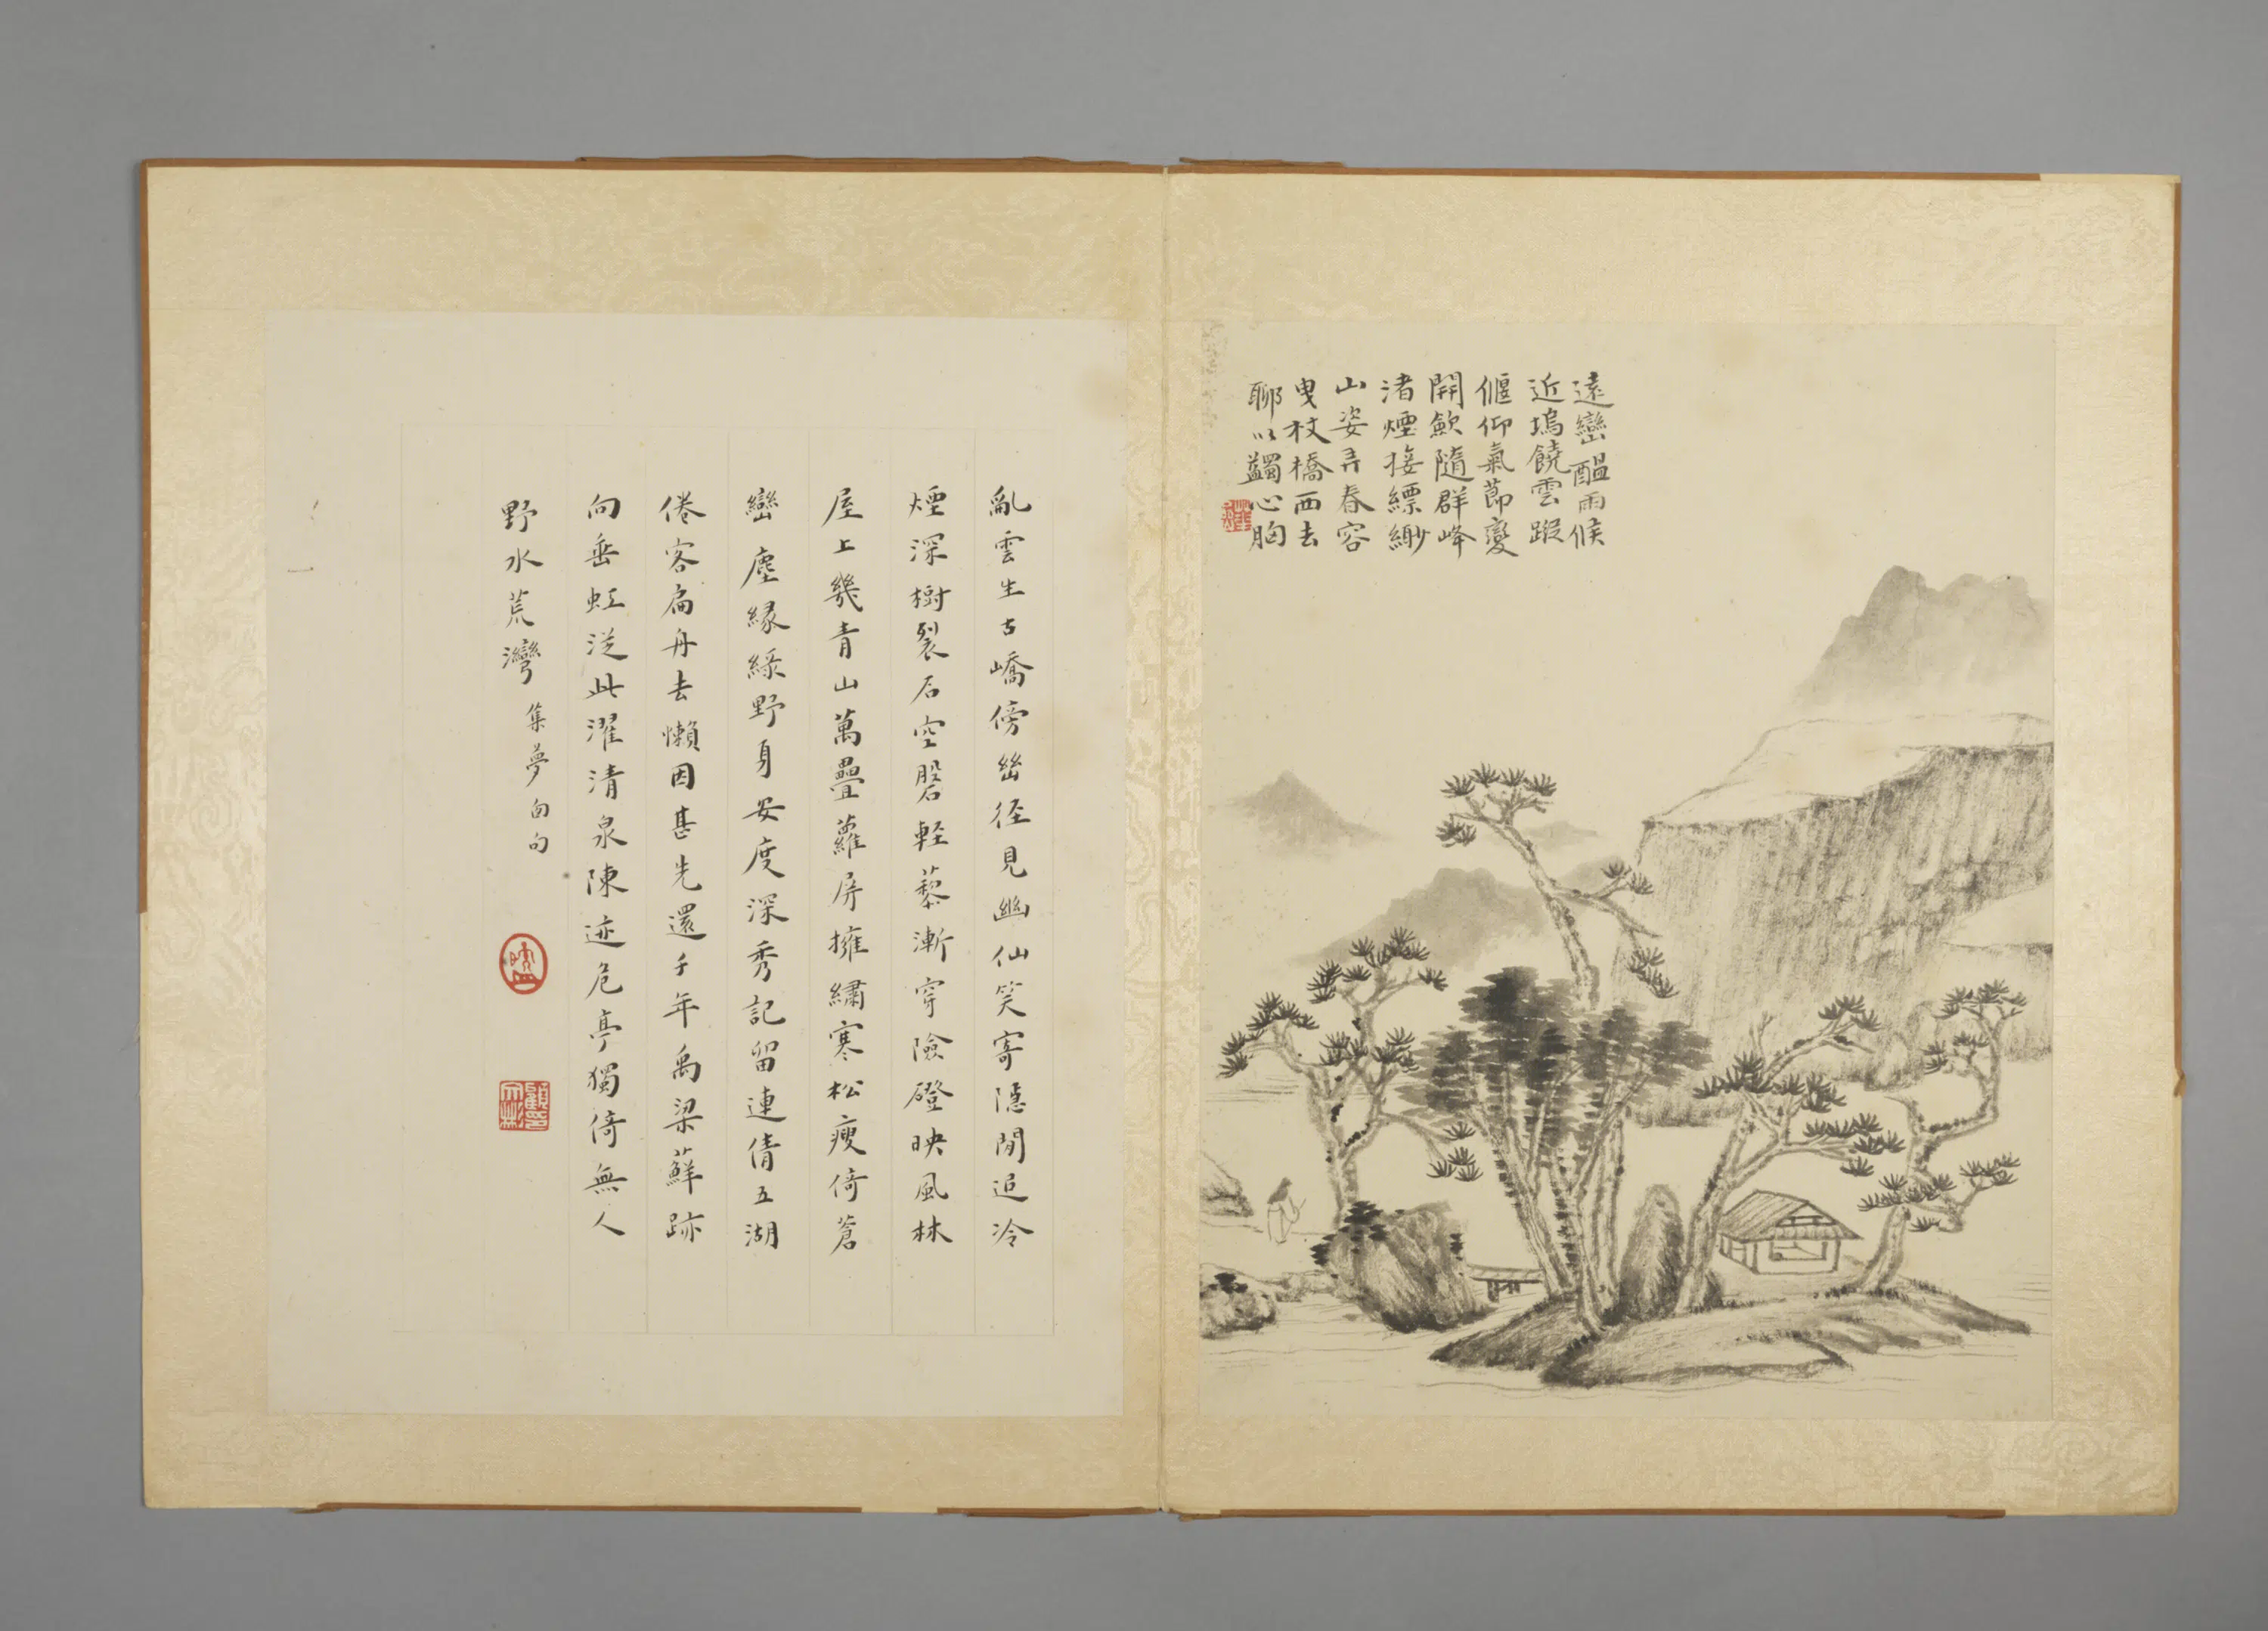 遠巒醖雨候
近塢饒雲蹤
偃仰氣莭變
開歛隨群峰
渚煙接縹緲
山姿弄春容
曳杖橋西去
聊以蠲心胸
亂雲生古嶠傍㟮徑見幽仙笑寄隱閒追冷
煙深樹裂石空磬軽藜漸穿險磴映風林
屋上幾青山萬疊蘿屏擁繡寒松瘦倚蒼
巒 塵緣綠野身安度深秀記留連倩五湖
倦客扁舟去懶因甚先還千年禹梁蘚跡
向垂虹泛此濯清泉陳迹危亭獨倚無人
野水荒灣 集夢囱句